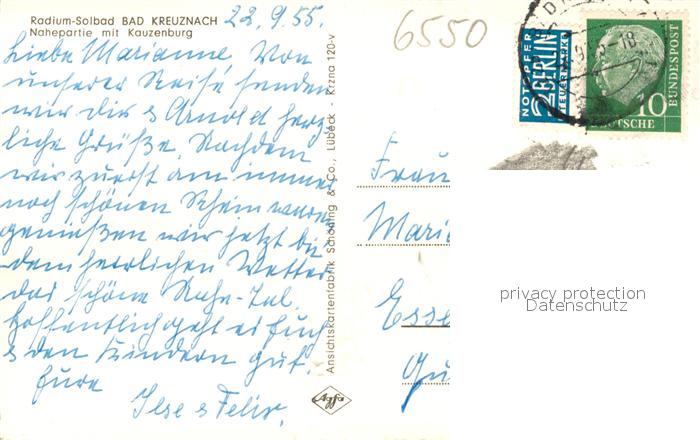 Radium-Solbad BAD KREUZNACH
Nahepartie mit Kauzenburg
22.9.55.
Liebe Marianne, Von
unserer Reise senden
wir dir & Arnold herz-
liche Grüße. Nachdem
wir zuerst am immer
noch schönen Rhein waren
genießen wir jetzt bei
dem herrlichen Wetter
das schöne Nahe-Tal.
Hoffentlich geht es Euch
& den Kindern gut.
Eure
Ilse & Felix.
Ansichtskartenfabrik Schöning & Co., Lübeck - Krzna 120-v
Agfa
6550
NOTOPFER
2 BERLIN
STEUERMARKE
10
DEUTSCHE
BUNDESPOST
Frau
Maria
Esse
privacy protection
Datenschutz